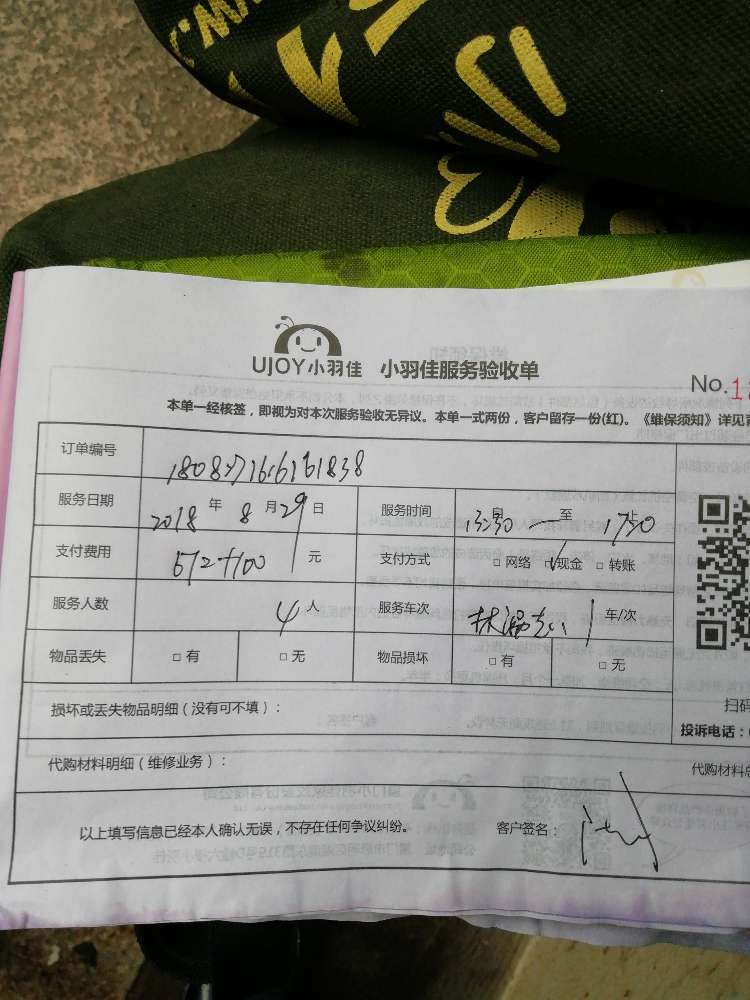 UJOY小羽佳 小羽佳服务验收单
No.1
本单一经核签，即视为对本次服务验收无异议。本单一式两份，客户留存一份(红)。《维保须知》详见背
订单编号
服务日期 2018 年 8 月 29 日 服务时间 自 13:30 至 17:30 止
支付费用 512+100 元 支付方式 □ 网络 ☑现金 □ 转账
服务人数 4 人 服务车次 1 车/次
物品丢失 □ 有 □ 无 物品损坏 □ 有 □ 无
损坏或丢失物品明细（没有可不填）：
扫码
投诉电话：
代购材料明细（维修业务）：
代购材料总
以上填写信息已经本人确认无误，不存在任何争议纠纷。 客户签名：